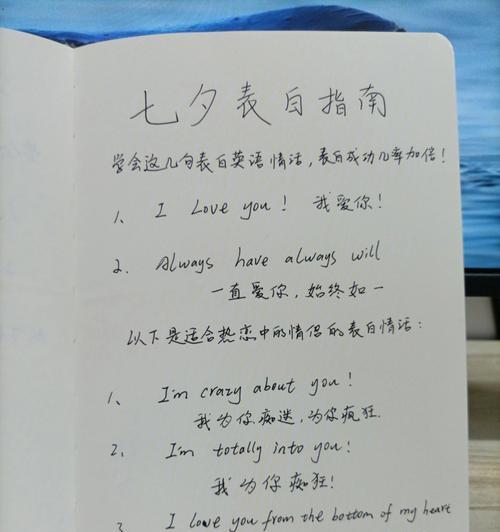 七夕表白指南
学会这几句表白英语情话,表白成功几率加倍!
1、 I Love you! 我爱你!
2. Always have always will
一直爱你,始终如一
以下是适合热恋中的情侣的表白情话:
1、 I'm crazy about you!
我为你痴迷,为你疯狂.
2. I'm totally into you!
我为你痴狂!
3 I love you from the bottom of my heart